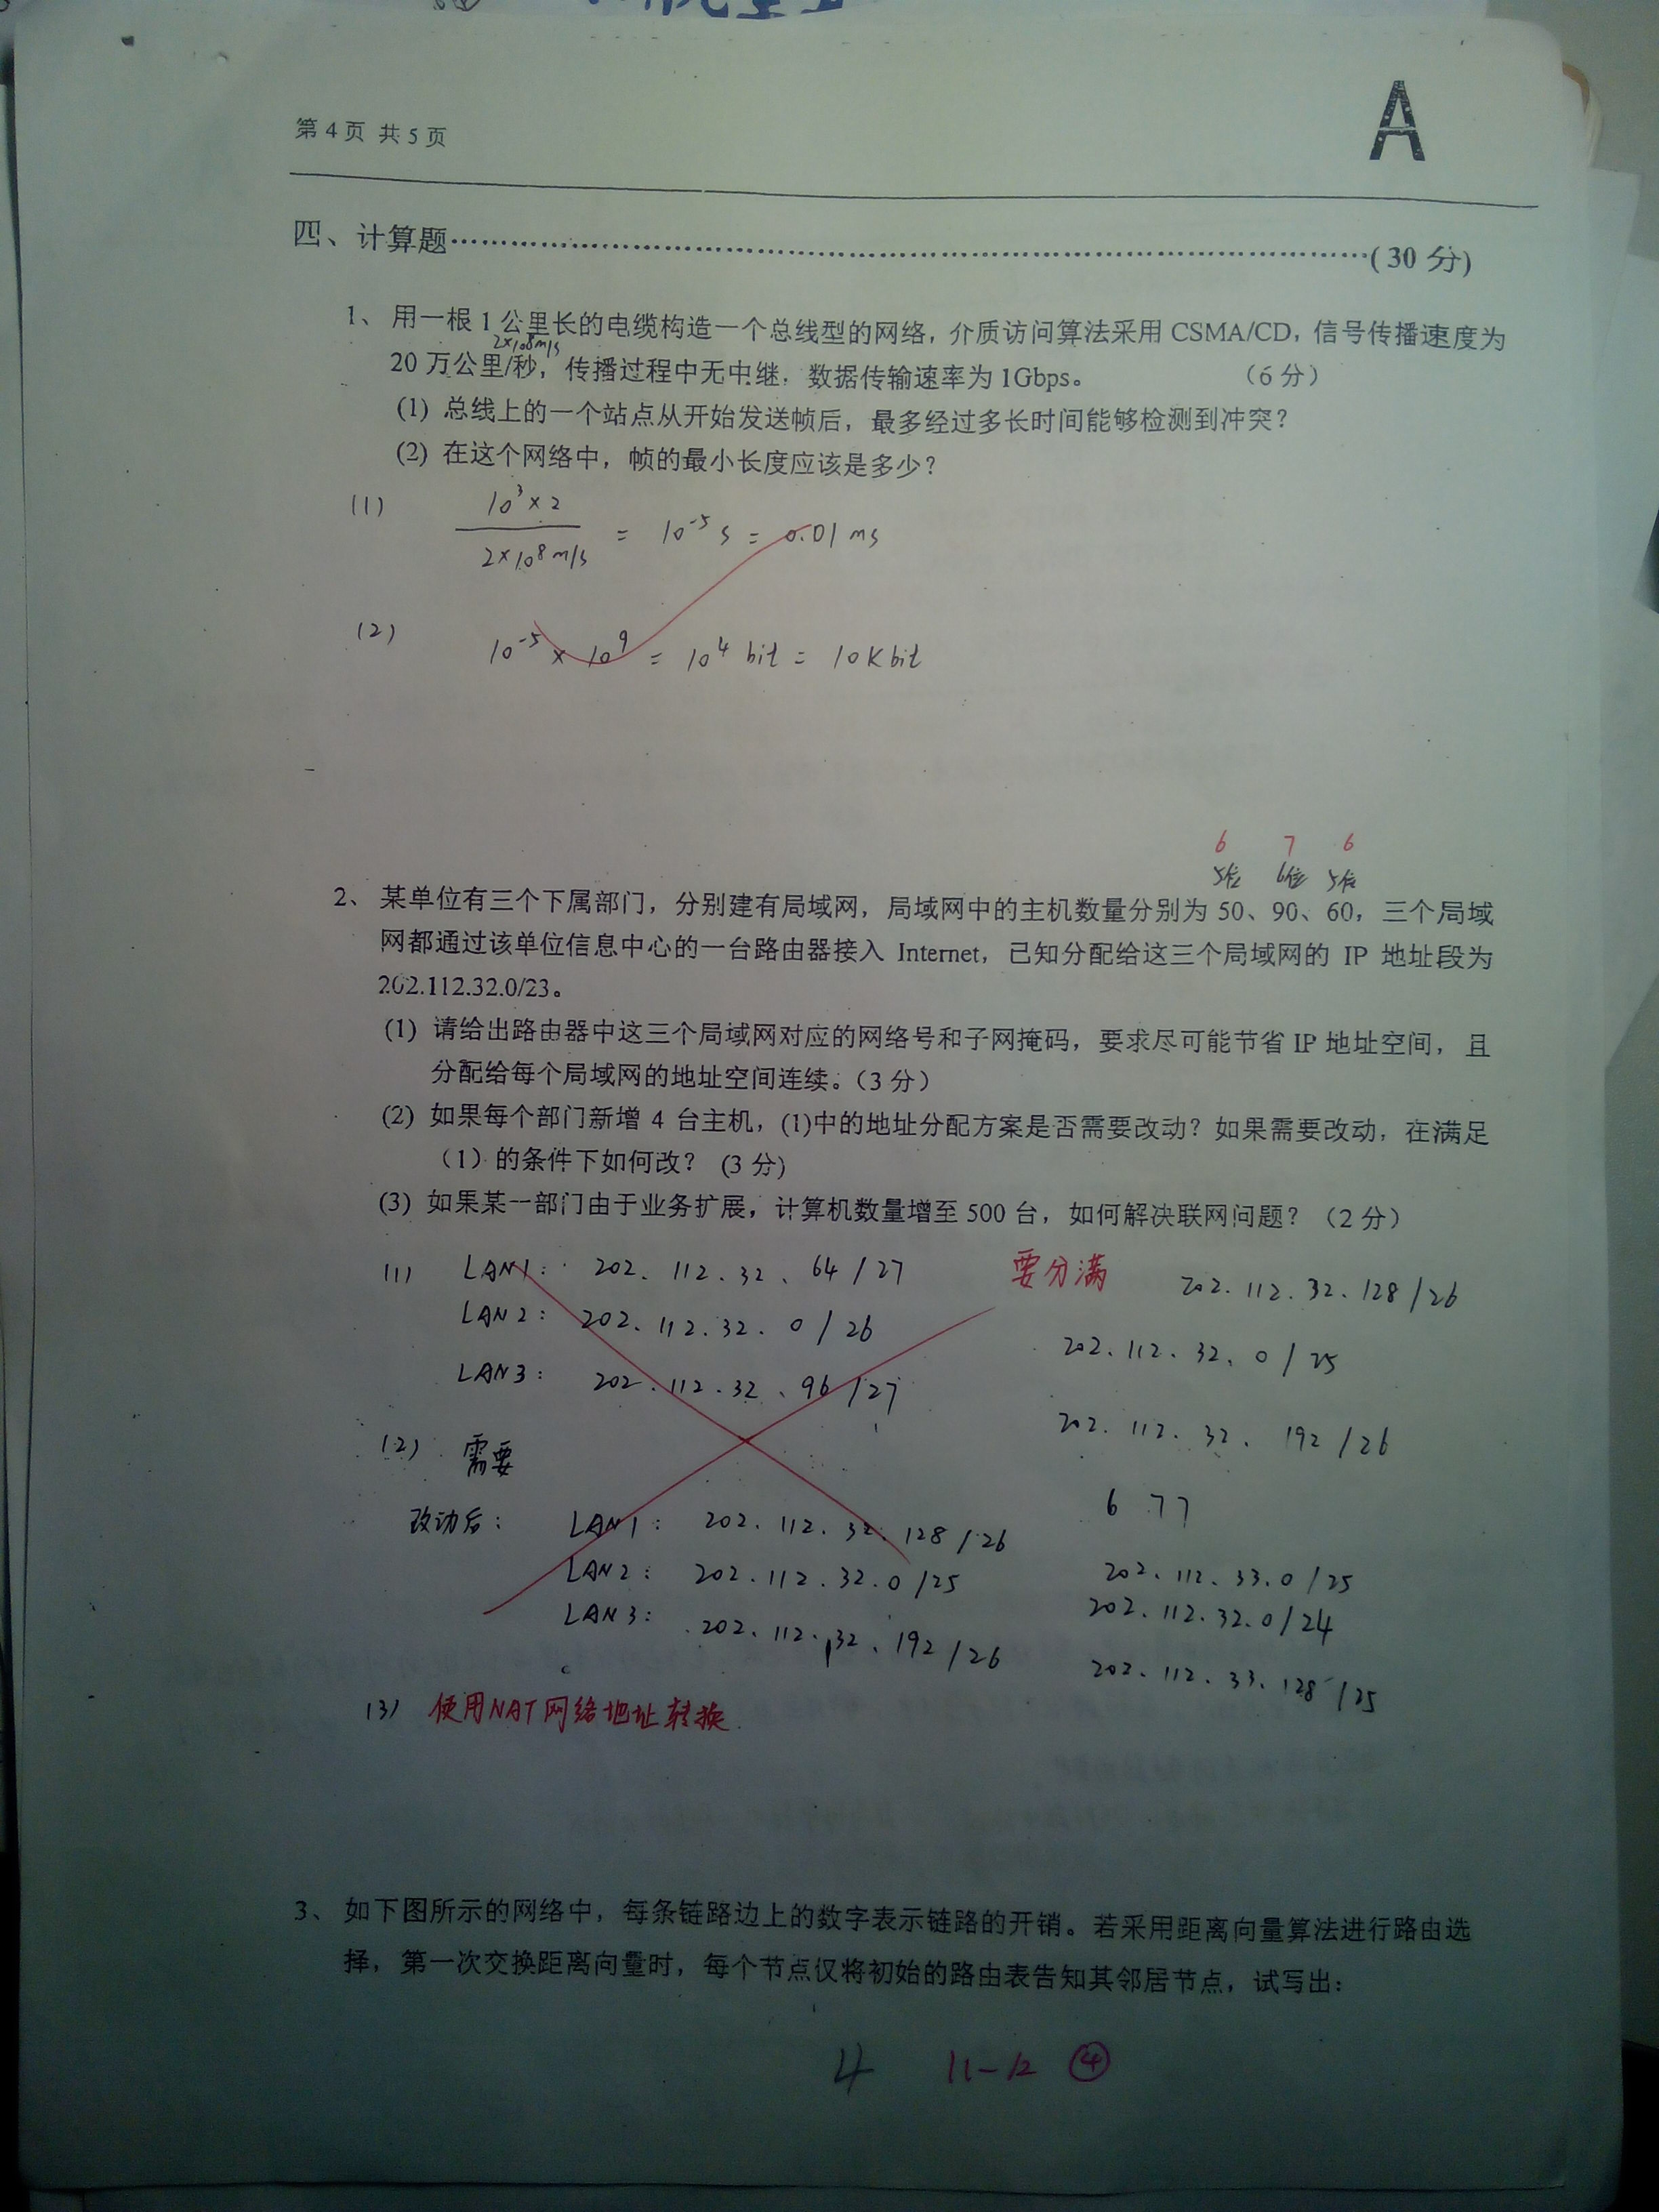 第4页 共5页
A
四、计算题……(30分)
1、用一根1公里长的电缆构造一个总线型的网络，介质访问算法采用CSMA/CD，信号传播速度为
2×10⁸m/s
20万公里/秒，传播过程中无中继，数据传输速率为1Gbps。 （6分）
(1) 总线上的一个站点从开始发送帧后，最多经过多长时间能够检测到冲突？
(2) 在这个网络中，帧的最小长度应该是多少？
(1) 10³×2 / 2×10⁸m/s = 10⁻⁵s = 0.01ms
(2) 10⁻⁵ × 10⁹ = 10⁴ bit = 10Kbit
6 7 6
5位 6位 5位
2、某单位有三个下属部门，分别建有局域网，局域网中的主机数量分别为50、90、60，三个局域
网都通过该单位信息中心的一台路由器接入 Internet，已知分配给这三个局域网的 IP 地址段为
202.112.32.0/23。
(1) 请给出路由器中这三个局域网对应的网络号和子网掩码，要求尽可能节省IP地址空间，且
分配给每个局域网的地址空间连续。（3分）
(2) 如果每个部门新增4台主机，(1)中的地址分配方案是否需要改动？如果需要改动，在满足
（1）的条件下如何改？ (3分)
(3) 如果某一部门由于业务扩展，计算机数量增至500台，如何解决联网问题？（2分）
(1) LAN1: 202.112.32.64/27 要分满 202.112.32.128/26
LAN2: 202.112.32.0/26 202.112.32.0/25
LAN3: 202.112.32.96/27 202.112.32.192/26
(2) 需要
6 7 7
改动后: LAN1: 202.112.32.128/26
LAN2: 202.112.32.0/25 202.112.33.0/25
LAN3: 202.112.32.192/26 202.112.32.0/24
202.112.33.128/25
(3) 使用NAT网络地址转换.
3、如下图所示的网络中，每条链路边上的数字表示链路的开销。若采用距离向量算法进行路由选
择，第一次交换距离向量时，每个节点仅将初始的路由表告知其邻居节点，试写出：
4 11-12 ④